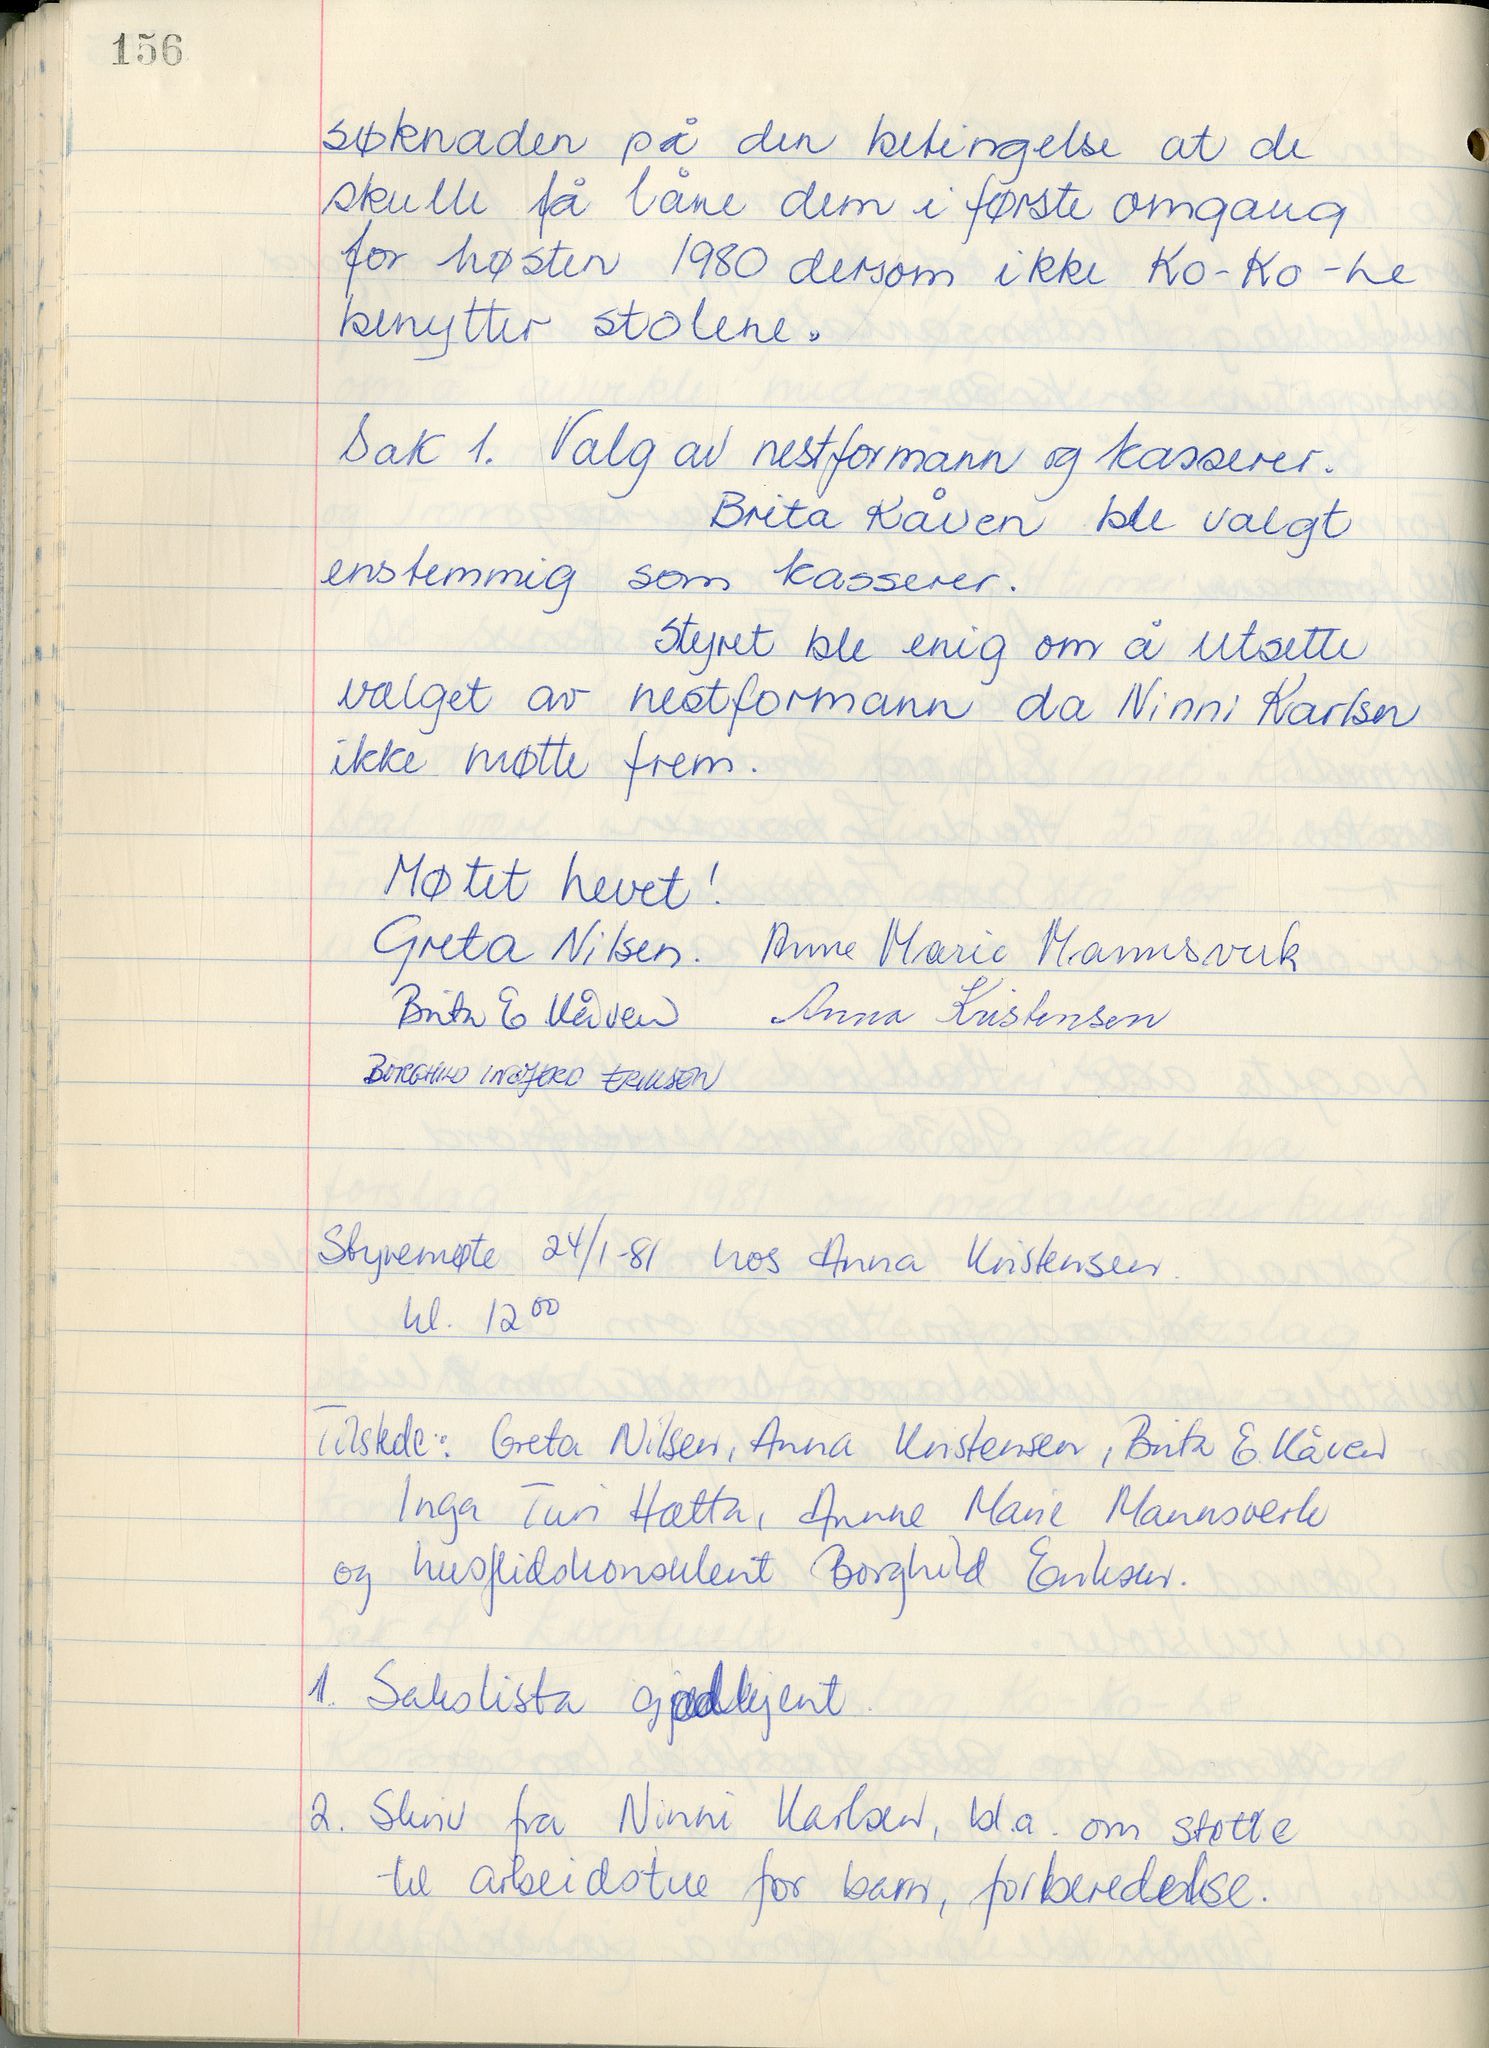 156
søknaden på den betingelse at de
skulle få låne dem i første omgang
for høsten 1980 dersom ikke Ko-Ko-he
benytter stolene.
Sak 1. Valg av nestformann og kasserer.
Brita Kåven ble valgt
enstemmig som kasserer.
Styret ble enig om å utsette
valget av nestformann da Ninni Karlsen
ikke møtte frem.
Møtet hevet!
Greta Nilsen. Anne Marie Mannsverk
Brita E Kåven Anna Kristensen
BORGHILD INGJERD ERIKSEN
Styremøte 24/1-81 hos Anna Kristensen.
kl. 12 00
Tilstede: Greta Nilsen, Anna Kristensen, Brita E. Kåven
Inga Turi Hætta, Annne Marie Mannsverk
og husflidskonsulent Borghild Eriksen.
1. Sakslista godkjent.
2. Skriv fra Ninni Karlsen, bl.a. om støtte
til arbeidstue for barn, forberedelse.